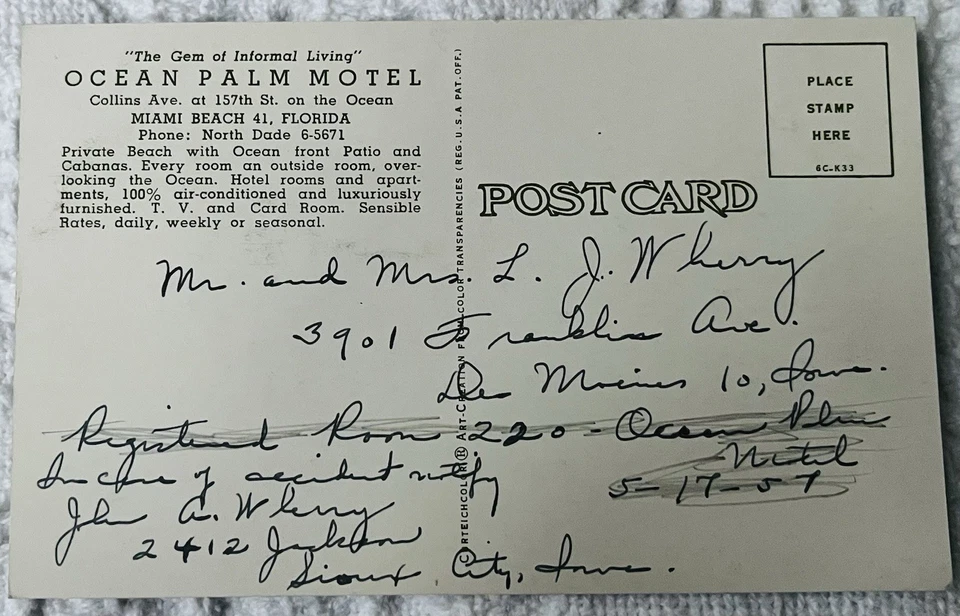 "The Gem of Informal Living"
OCEAN PALM MOTEL
Collins Ave. at 157th St. on the Ocean
MIAMI BEACH 41, FLORIDA
Phone: North Dade 6-5671
Private Beach with Ocean front Patio and
Cabanas. Every room an outside room, over-
looking the Ocean. Hotel rooms and apart-
ments, 100% air-conditioned and luxuriously
furnished. T. V. and Card Room. Sensible
Rates, daily, weekly or seasonal.
CURTEICHCOLOR® ART-CREATION FROM COLOR TRANSPARENCIES (REG. U.S.A PAT. OFF.)
PLACE
STAMP
HERE
6C-K33
POST CARD
Mr. and Mrs. L. J. Wherry
3901 Franklin Ave.
Des Moines 10, Iowa.
Registered Room 220 - Ocean Palm
Motel
5-17-57
In case of accident notify
John A. Wherry
2412 Jackson
Sioux City, Iowa.